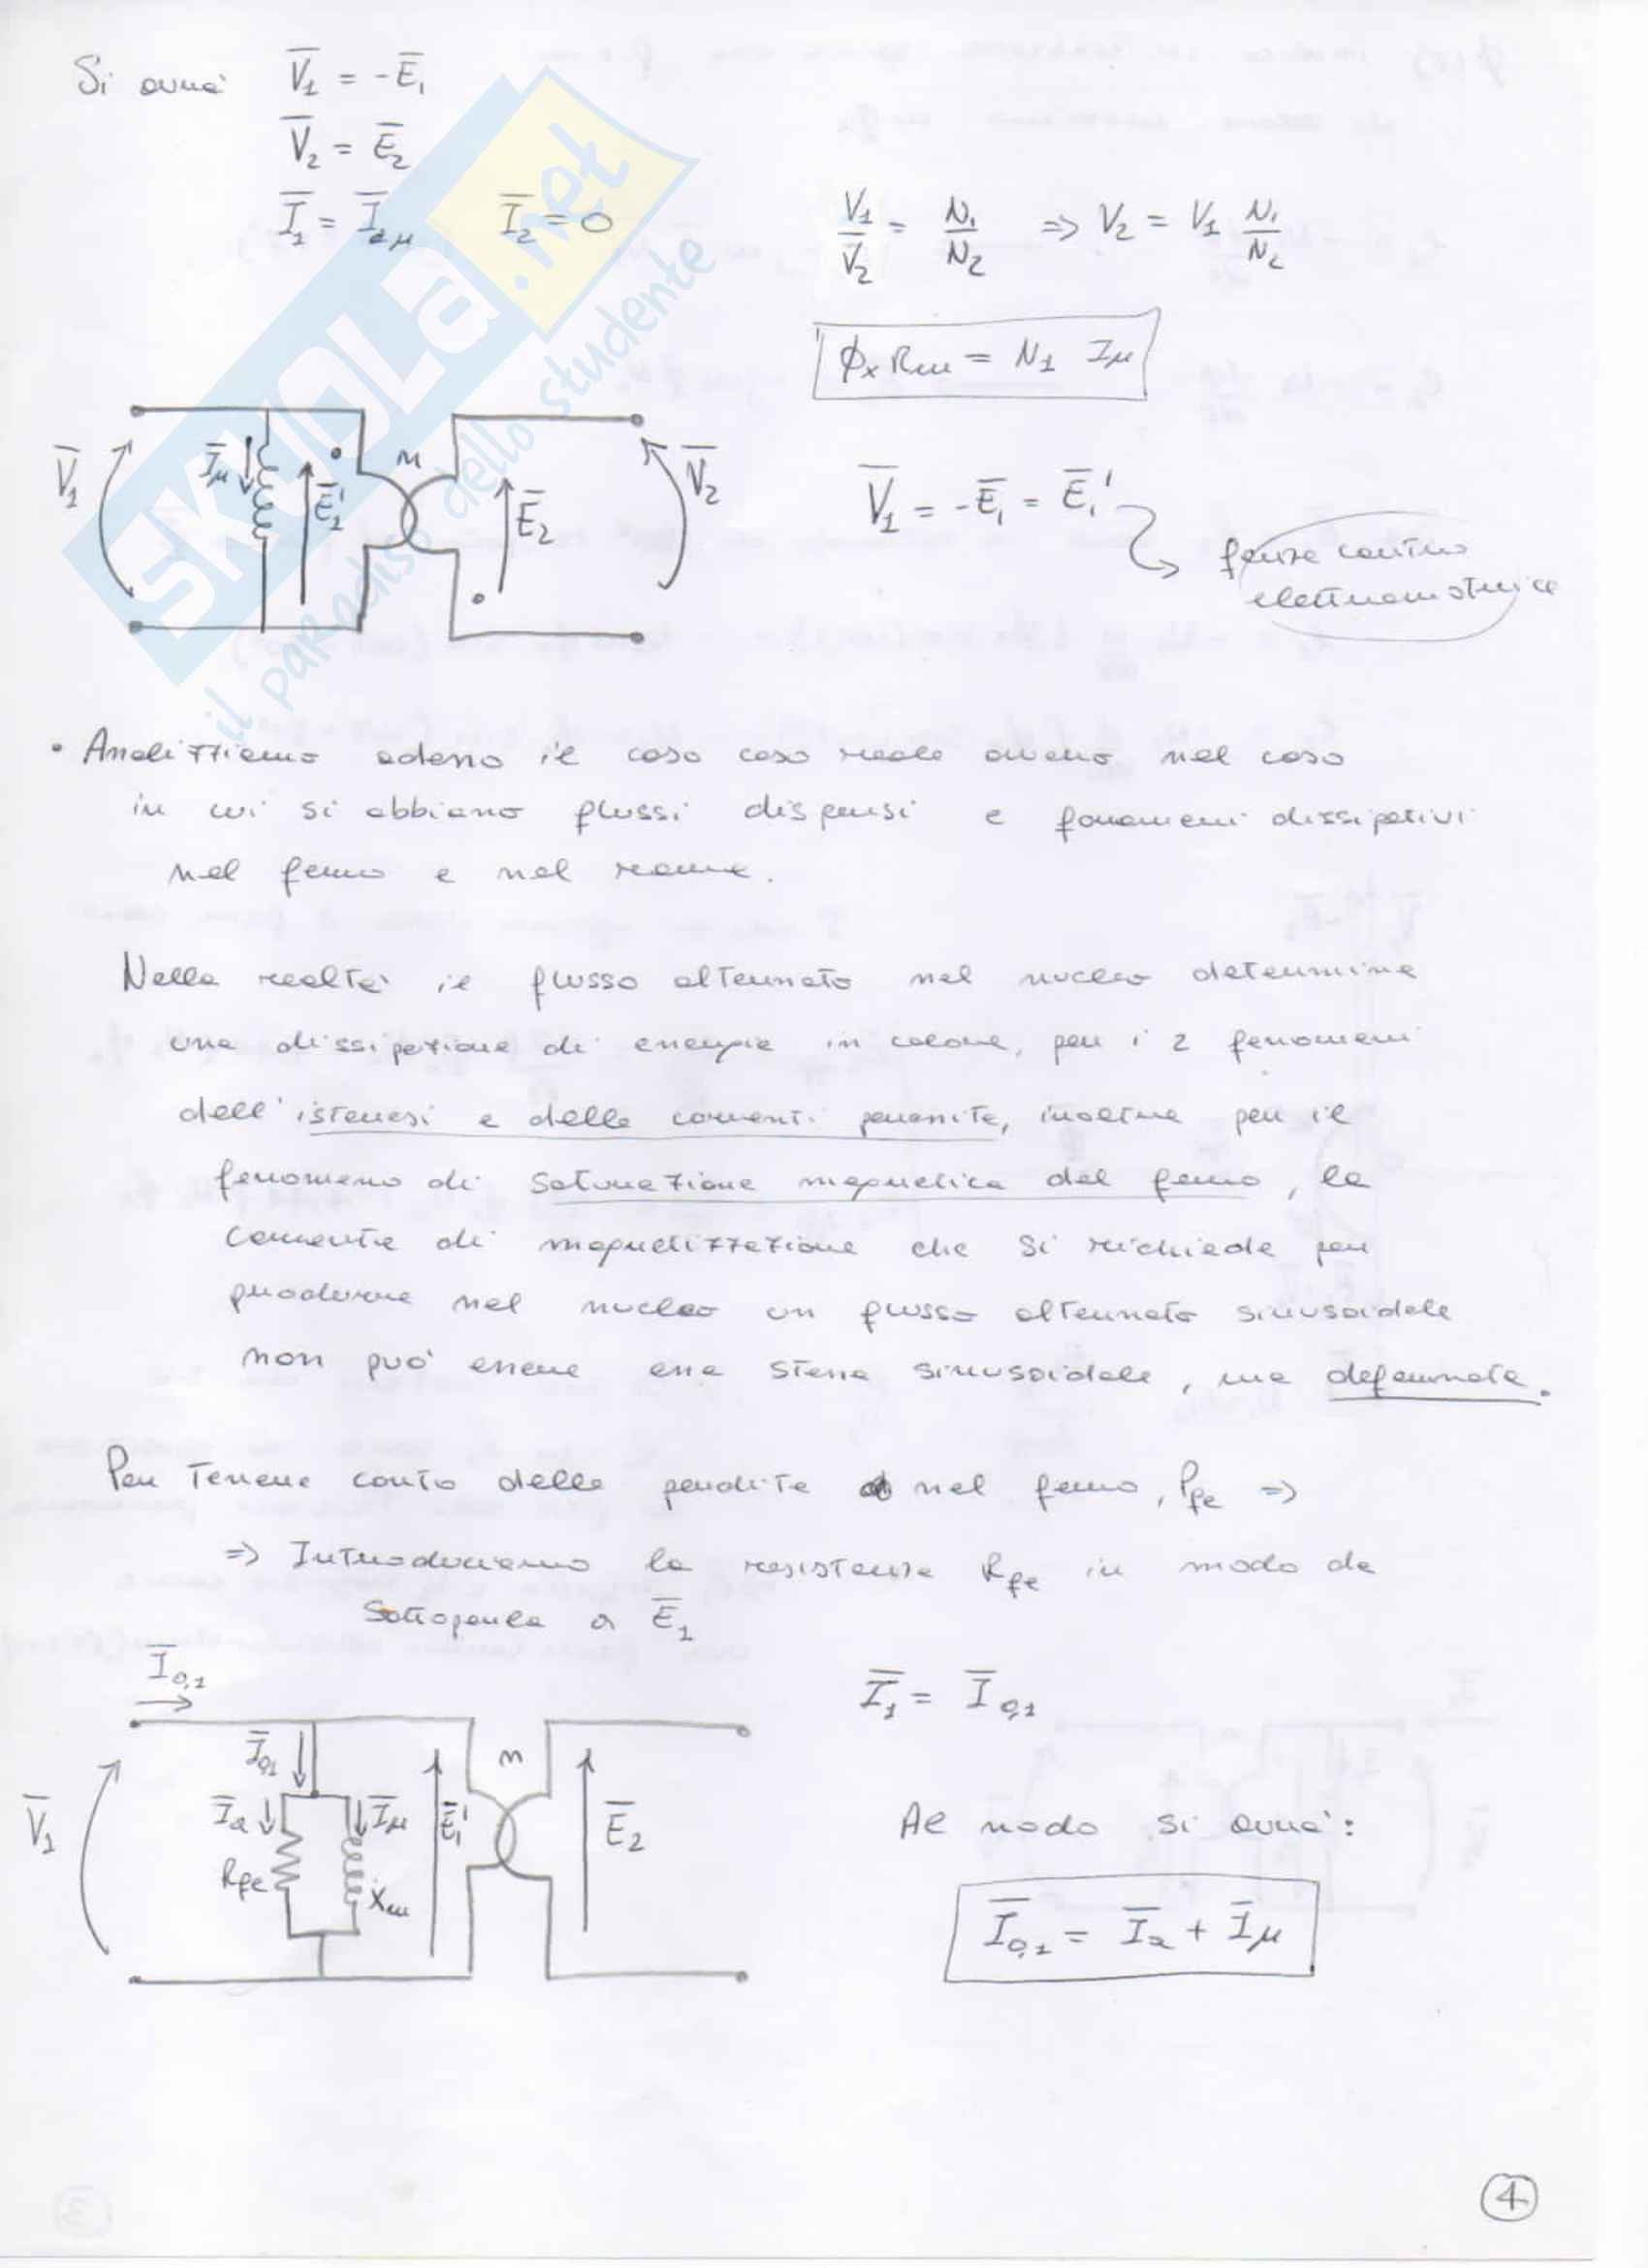 Si avrà V̅1 = -E̅1
V̅2 = E̅2
I̅1 = I̅2μ I̅2 = 0
V1/V2 = N1/N2 => V2 = V1 N1/N2
ϕx Rm = N1 Iμ
V̅1 I̅μ E̅1' n E̅2 V̅2
V̅1 = -E̅1 = E̅1'
forza contro
elettromotrice
SKUOLA.net
il paradiso dello studente
• Analizziamo adesso il caso caso reale ovvero nel caso
in cui si abbiano flussi dispersi e fonomeni dissipativi
nel ferro e nel rame.
Nella realtà il flusso alternato nel nucleo determina
una dissipazione di energia in calore, per i 2 fenomeni
dell'isteresi e delle correnti parassite, inoltre per il
fenomeno di saturazione magnetica del ferro, la
corrente di magnetizzazione che si richiede per
produrre nel nucleo un flusso alternato sinusoidale
non può essere essa stessa sinusoidale, ma deformata.
Per tenere conto delle perdite nel ferro, Pfe =>
=> Introduciamo la resistenza Rfe in modo da
sottoporla a E̅1
I̅0,1
I̅1 = I̅0,1
V̅1 I̅0,1 I̅a I̅μ Rfe Xm E̅1' n E̅2
Al nodo si avrà:
I̅0,1 = I̅a + I̅μ
4